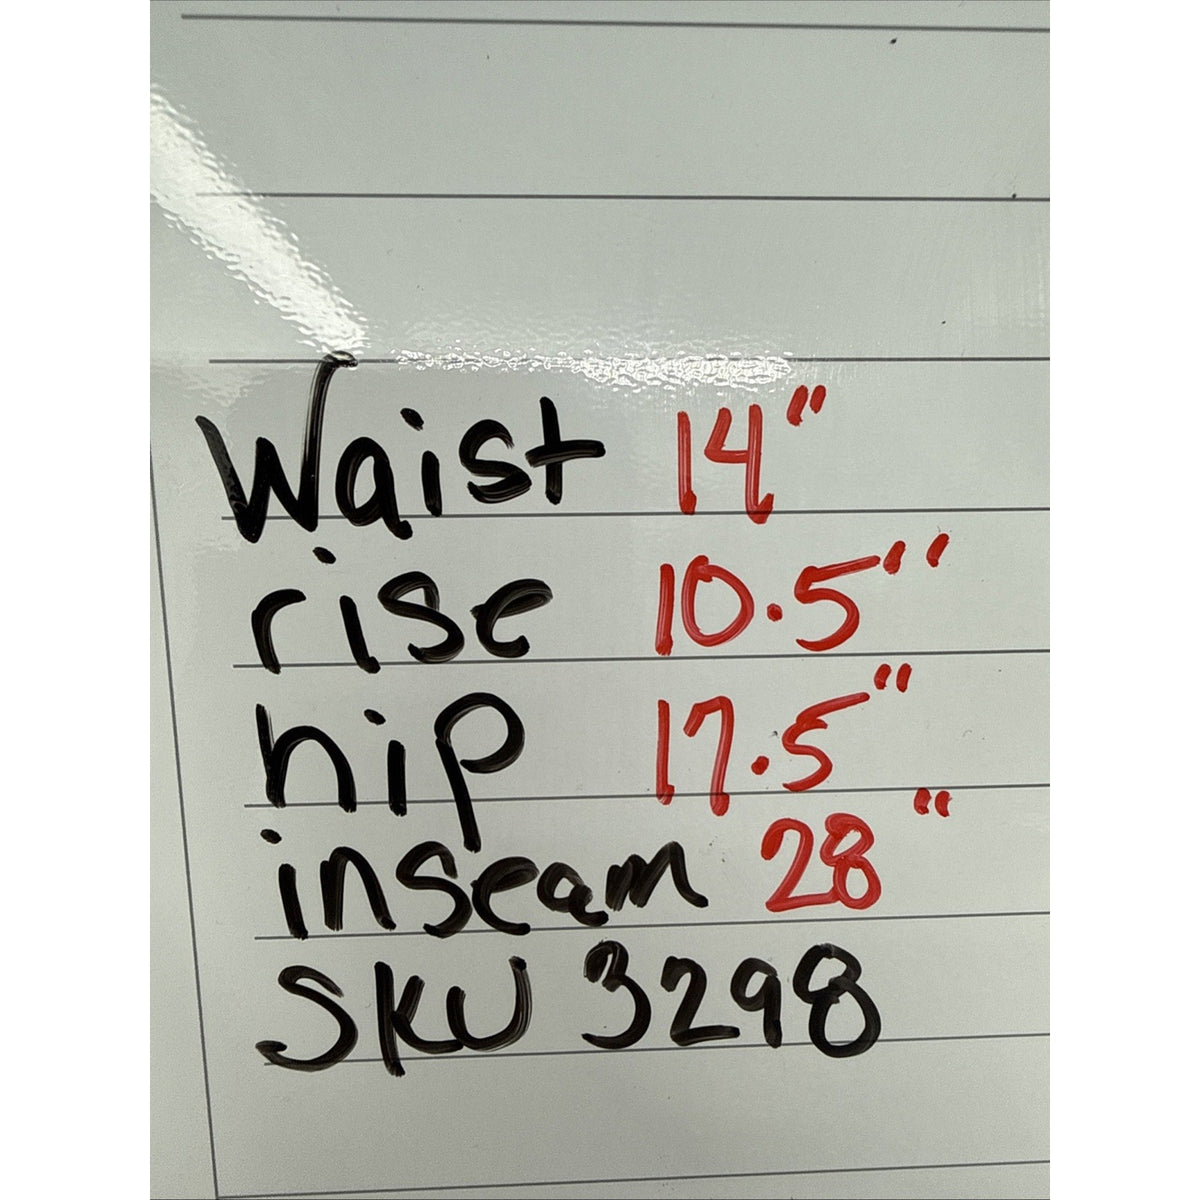 Waist 14"
rise 10.5"
hip 17.5"
inseam 28"
SKU 3298